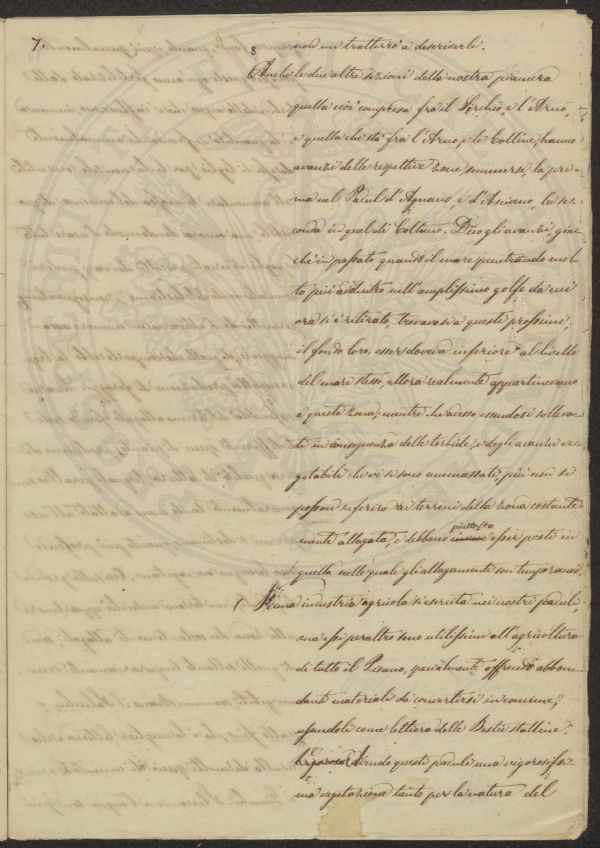 7.
non mi tratterrò a descriverle.
8
Anche le due altre sezioni della nostra pianura
quella cioè compresa fra il Serchio, e l'Arno,
e quella che sta fra l'Arno, e le Colline, hanno
avanzi delle respettive zone sommerse, la pri-
ma nel Padul d'Agnano, e d'Asciano, la se-
conda in quel di Coltano. Dico gli avanzi, giac-
chè in passato quando il mare penetrando mol-
to più addentro nell'amplissimo golfo da cui
ora si è ritirato, trovavasi a questi prossimi,
il fondo loro, esser doveva inferiore al livello
del mare stesso, allora realmente appartenevano
a questa zona; mentre che adesso essendosi solleva-
ti in conseguenza delle torbide, e degli avanzi ve-
getabili che vi si sono ammassati, più non si
possono riferire ai terreni della zona costante-
mente allagata, e debbono piuttosto esser posti in
quella nelle quali gli allagamenti son temporanei.
( Niuna industria agricola si esercita nei nostri paduli,
ma essi peraltro sono utilissimi all'agricoltura
di tutto il Pisano, specialmente offrendo abbon-
danti materiale da convertirsi in concime,
usandoli come lettiera delle Bestie stalline.
Avendo questi paduli una vigorosissi-
ma vegetazione tanto per la natura del